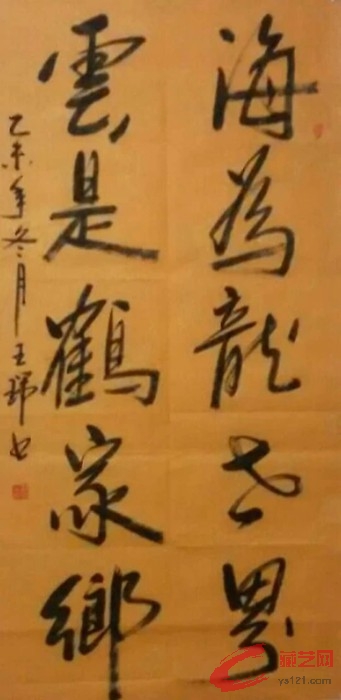 海為龍世界
雲是鶴家鄉
乙未年冬月王瑞书
藏艺网
ys121.com